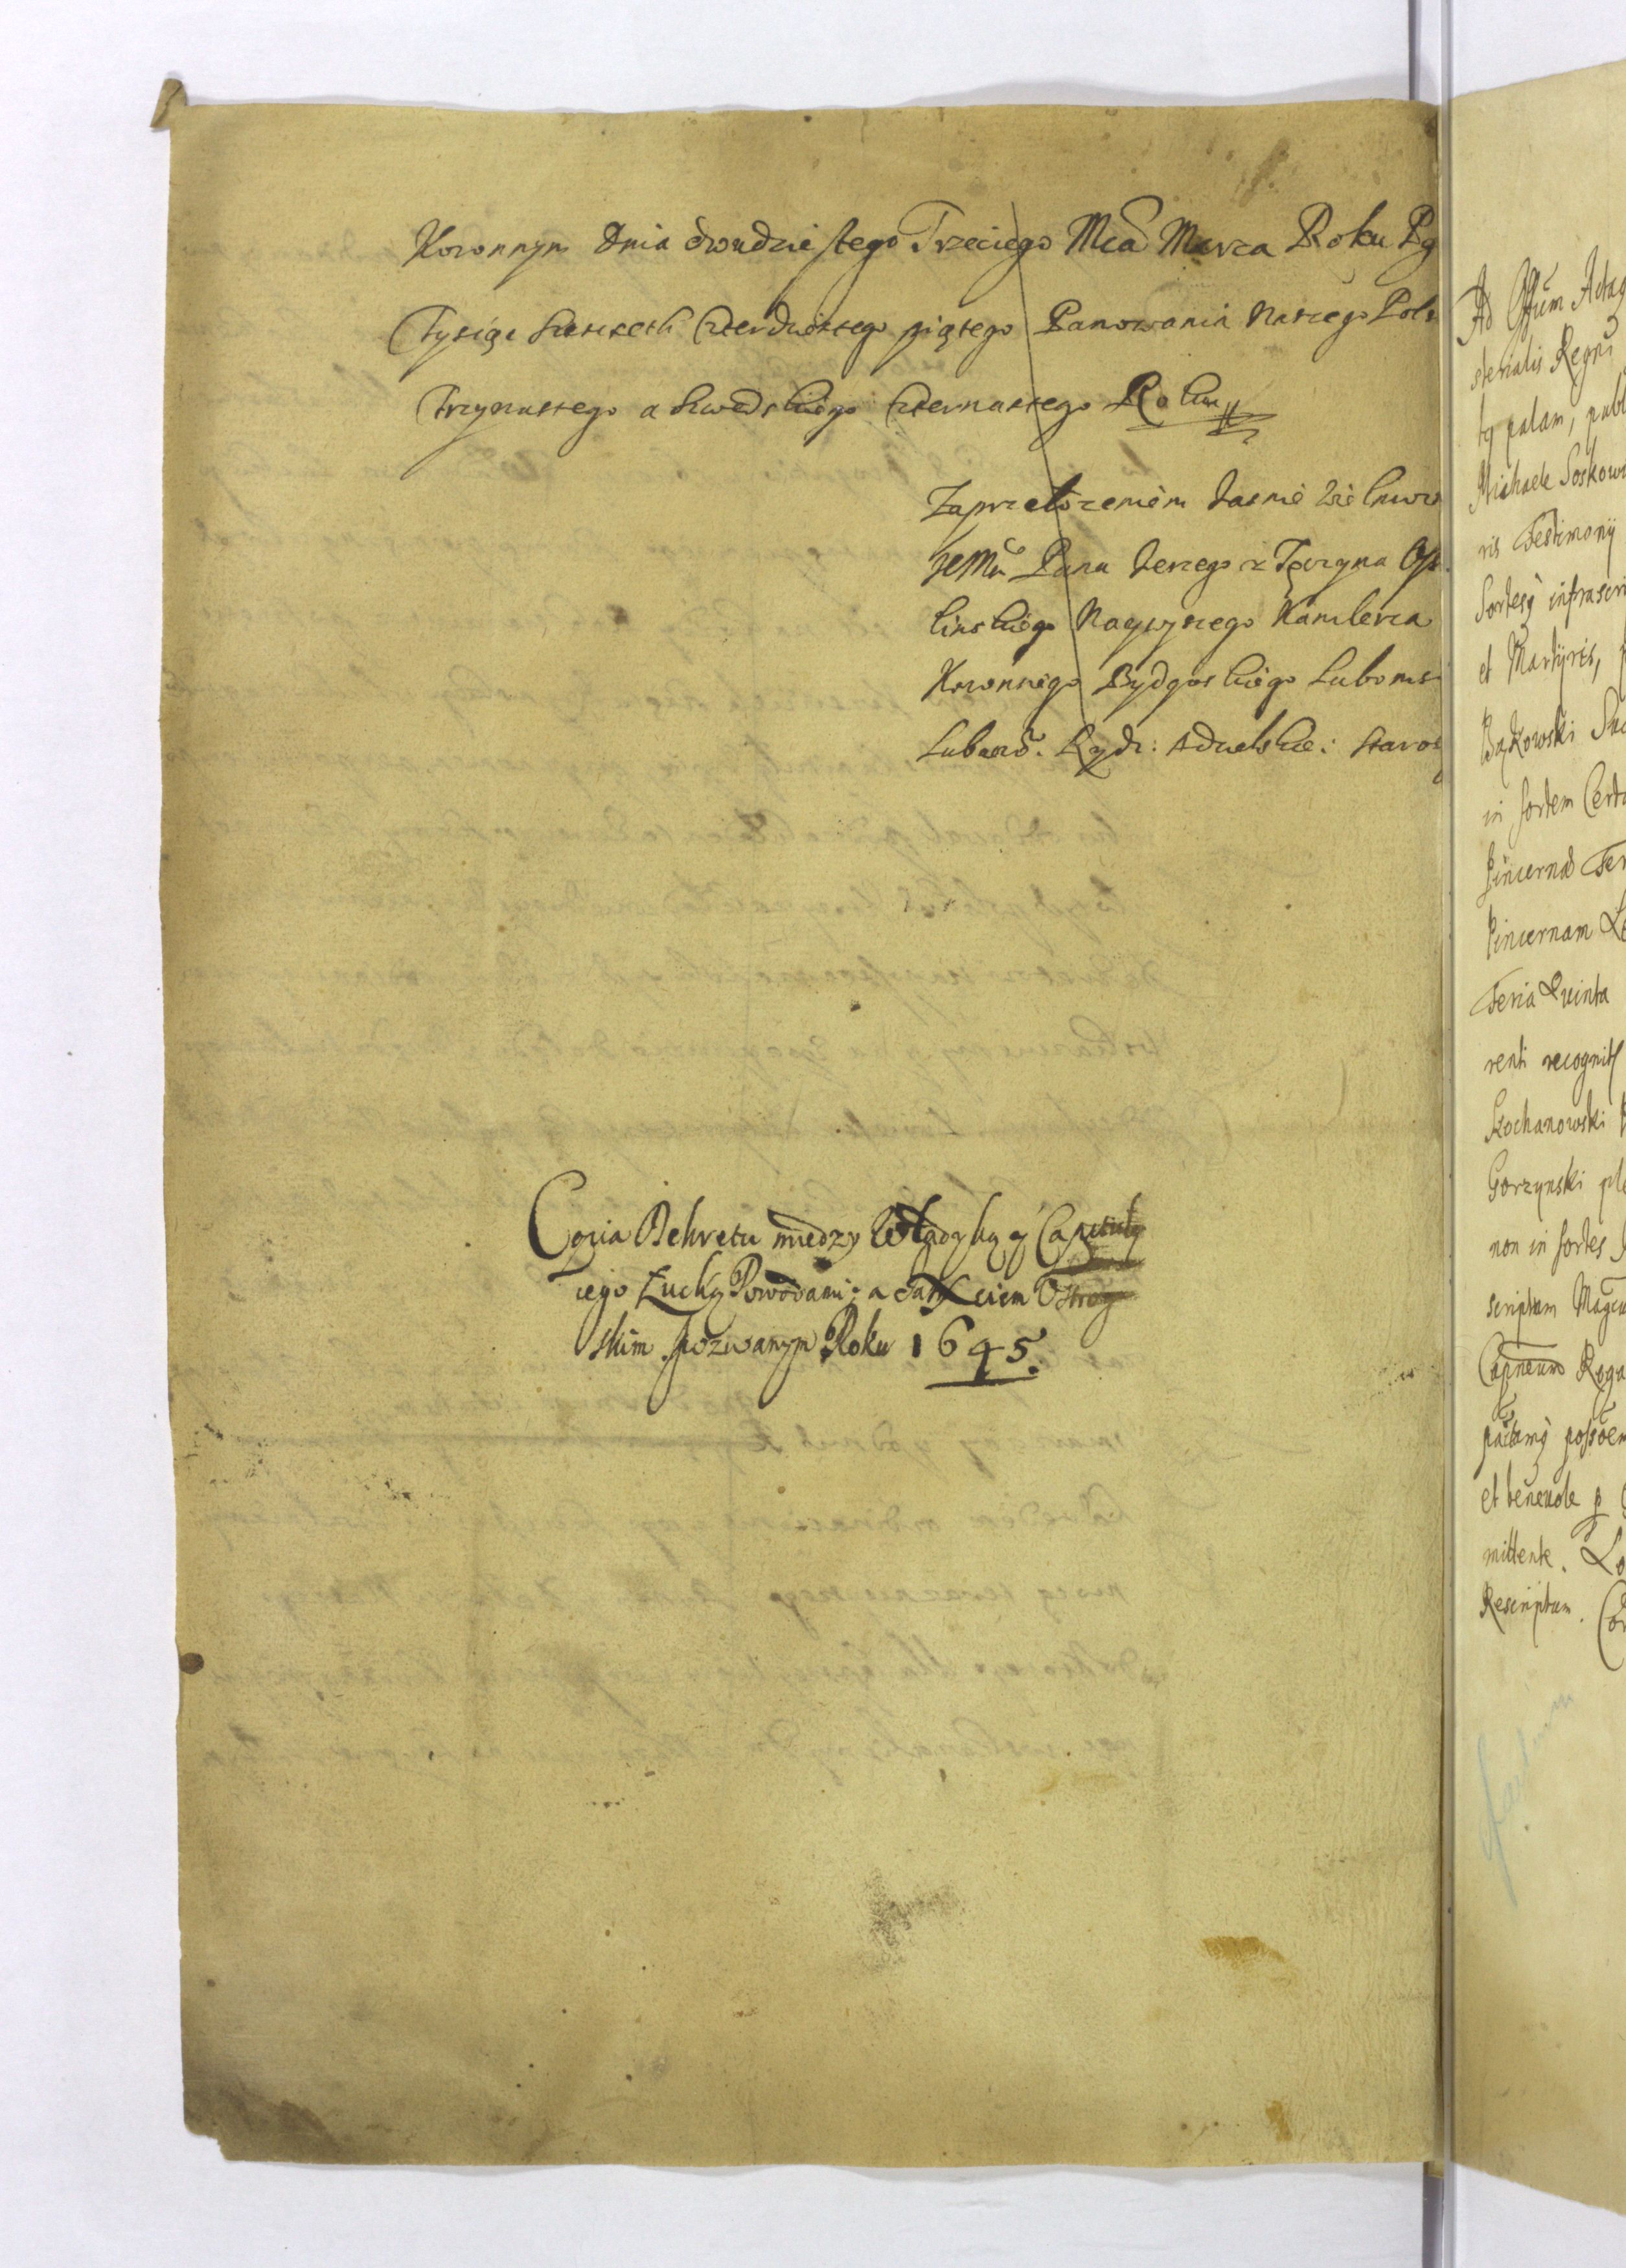 Koronnym Dnia dwudziestego Trzeciego Mca Marca Roku Pą
Tysiąc szescseth czterdziestego piątego Panowania Naszego Pols
Trzynastego a szwedzkiego czternastego Roku
Za przełozeniem Jasnie Wielmoz
JeMci Pana Jerzego z Tęczyna Os
linskiego Naywyszego Kanclerza
Koronnego Bydgoskiego Luboms
Lubacz. Rydz: Adzelskie: Staros
Copia Dekretu między Władyką y Capitułą
iego Łucką Powodami; a Xciem Ostrog
skim pozwanym Roku 1645.
Ad Offum Actaq
sterialis Regni
tq palam, publ
Michaele Soskow
ris Testimonij
Sortesq infrascri
et Martyris,
Bąkowski
in sortem Certa
Pincerna Ter
Pincernam
Feria Quinta
renti recognit
Kochanowski
Gorzynski
non in sortes
scriptum Magcu
Capneum Roga
possoem
et benevole p
mittente.
Rescriptum.